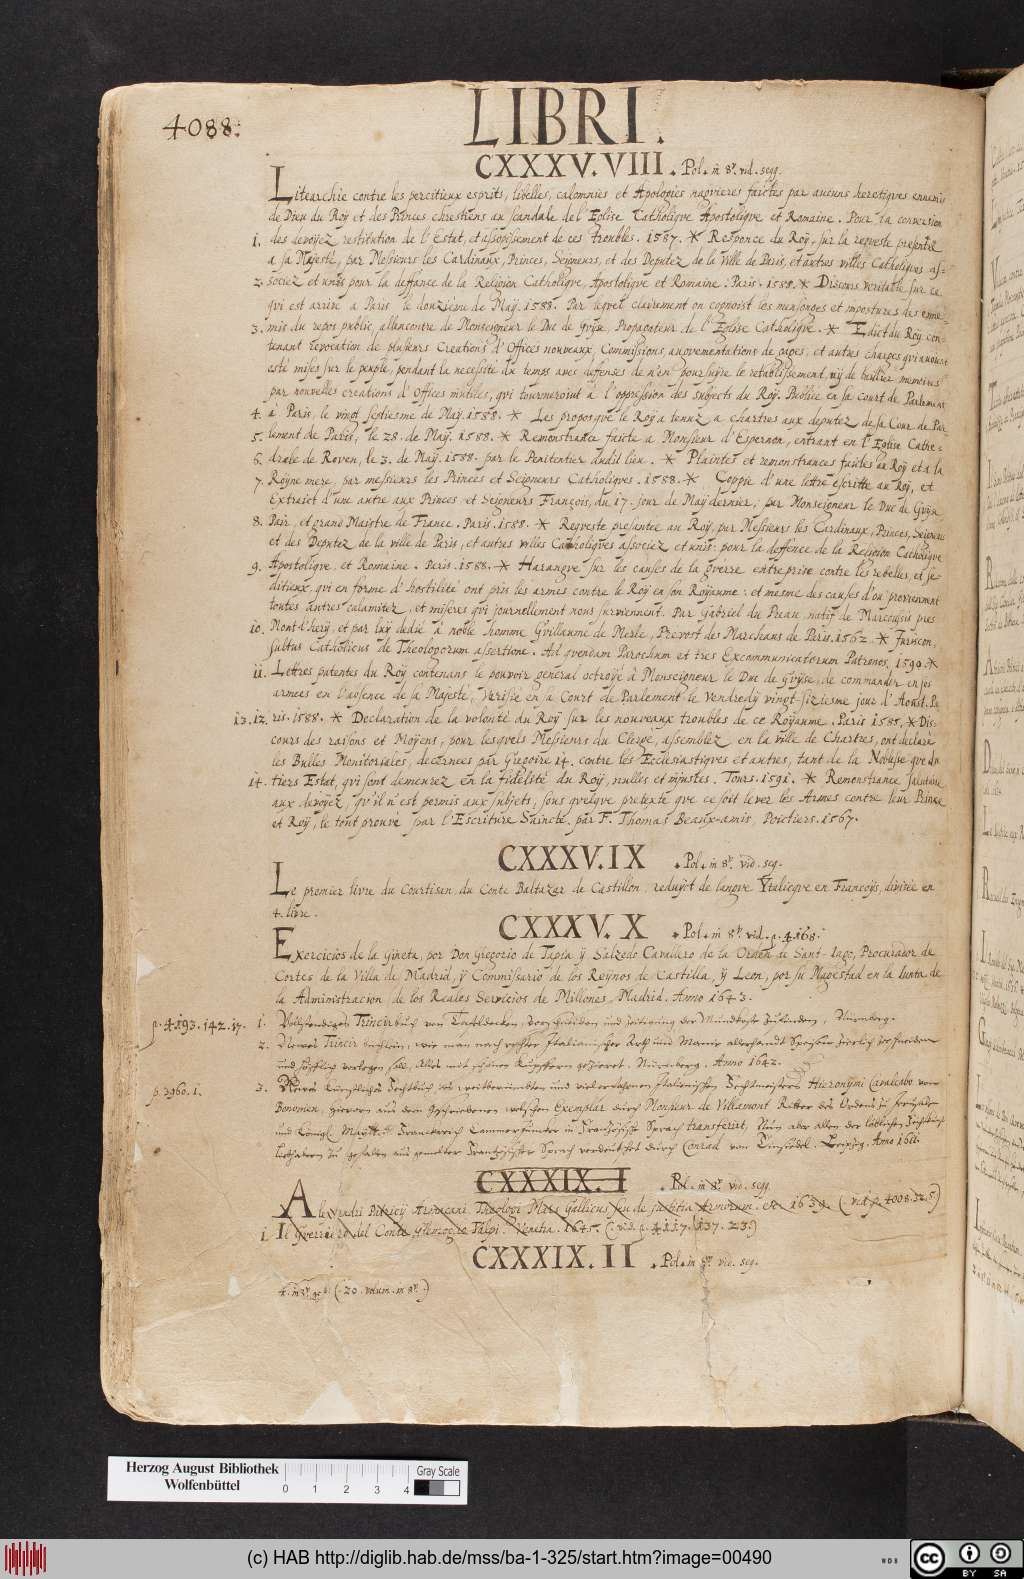 4088.
LIBRI.
CXXXV.VIII. Pol. in 8º. vid. seqq.
Litearchie contre les percitieux esprits, libelles, calomnies et Apologies nagvieres faictes par aucuns heretiqves ennemis
de Dieu du Roy et des Princes chrestiens au scandale de l'Eglise Catholiqve Apostoliqve et Romaine. Pour la conversion
1. des devoyez restitution de l'Estat, et assopissement de ces troubles. 1587. * Responce du Roy, sur la reqveste presentée
a sa Majesté, par Messieurs les Cardinaux, Princes, Seigneurs, et des Deputez de la Ville de Paris, et autres villes Catholiqves as-
2. sociez et unis pour la deffance de la Religion Catholiqve, Apostoliqve et Romaine. Paris. 1588. * Discours veritable sur ce
qvi est arrive a Paris le douzieme de May. 1588. Par leqvel clairement on cognoist les mensonges et impostures des enne-
3. mis du repos public allencontre de Monseigneur le Duc de Gvyse, Propagateur de l'Eglise Catholiqve. * Edict du Roy con-
tenant revocation de plusieurs Creations d'Offices nouveaux, Commissions, augmentations de gages, et autres charges qvi avoient
esté mises sur le peuple, pendant la necessité du temps avec defenses de n'en poursuyre le retablissement, ny de bailler memoires
par nouvelles creations d'Offices inutiles, qvi tourneroint à l'oppression des subjects du Roy. Publiée en sa court de Parlement
4. à Paris, le vingt septiesme de May. 1588. * Les propos qve le Roy a tenuz a chartres aux deputez de sa Cour de Par-
5. lement de Paris, le 28. de May. 1588. * Remonstrance faicte a Monsieur d'Espernon, entrant en l'Eglise Cathe-
6. drale de Roven, le 3. de May. 1588. par le Penitentier dudit lieu. * Plaintes et remonstrances faictes au Roy et a la
7. Royne mere, par messieurs les Princes et Seigneurs Catholiqves. 1588. * Coppie d'une lettre escritte au Roy, et
Extraict d'une autre aux Princes et Seigneurs François, du 17. jour de May dernier, par Monseigneur le Duc de Gvyse
8. Pair, et grand Maistre de France. Paris. 1588. * Reqveste presantée au Roy, par Messieurs les Cardinaux, Princes, Seigneurs
et des Deputez de la ville de Paris, et autres villes Catholiqves associez et unis: pour la deffence de la Religion Catholiqve
9. Apostoliqve, et Romaine. Paris. 1588. * Harangve sur les causes de la gverre entreprise contre les rebelles, et se-
ditieux, qvi en forme d'hostilité ont pris les armes contre le Roy en son Royaume: et mesme des causes d'ou proviennent
toutes autres calamitez, et miseres qvi journellement nous surviennent. Par Gabriel du Preau natif de Marcoussis pres
10. Mont-l'hery, et par luy dedié à noble homme Gvillaume de Merle, Prevost des Marchans de Paris. 1562. * Juriscon-
sultus Catholicus de Theologorum assertione. Ad qvendam Parochum et tres Excommunicatorum Patronos. 1590. *
11. Lettres patentes du Roy contenans le pouvoir general octroyé à Monseigneur le Duc de Gvyse, de commander en ses
armees en l'absence de sa Majesté, Verifié en sa Court de Parlement le Vendredy vingt-siziesme jour d'Aoust. Pa
13. 12. ris. 1588. * Declaration de la volonté du Roy sur les nouveaux troubles de ce Royaume. Paris 1585. * Dis-
cours des raisons et Moyens, pour lesqvels Messieurs du Clergé, assemblez en la ville de Chartres, ont declaré
les Bulles Monitoriales, decernées par Gregoire 14. contre les Ecclesiastiqves et autres, tant de la Noblesse qve du
14. tiers Estat, qvi sont demeurez en la fidelsté du Roy, nulles et injustes. Tours. 1591. * Remonstrance salutaire
aux devoyez, qv'il n'est permis aux subjets, sous qvelqve pretexte qve ce soit lever les Armes contre leur Prince
et Roy, le tout prouvé par l'Escriture Saincte. par F. Thomas Beaux-amis, Poictiers. 1567.
CXXXV.IX. Pol. in 8º. vid. seq.
Le premier livre du Courtisan, du Conte Baltazar de Castillon, reduyct de langve Ytalicqve en Françoys, divisée en
4. livre.
CXXXV.X. Pol. in 8º. vid. p. 4168.
Exercicios de la Gineta, por Don Gregorio de Tapia y Salzedo Cavallero de la Orden de Sant-Iago, Procurador de
Cortes de la Villa de Madrid, y Commissario de los Reynos de Castilla, y Leon, por su Magestad en la Iunta de
la Administracion de los Reales Servicios de Millones. Madrid. Anno 1643.
p. 4193. 142. 17. 1. Vollstendiges Trincirbuch von Tafeldecken, Vorschneiden und Zeitigung der Mundkoste Zulanden. Nürnberg.
2. Newes Trincir büchlein, wie man nach rechter Italianischer Arth und Manir allerhandt Speissen zierlich zerschneiden
und höfflich vorlegen soll, Alles mit schönen Kupffern gezieret. Nürnberg. Anno 1642.
p. 3960. 1. 3. Newes Künstliches Fechtbuch des weitberümbten und vielerfahrnen Italienischen Fechtmeisters Hieronymi Cavalcabo von
Bononien, hievorn aus dem geschriebenen welschen Exemplar durch Monsieur de Villamont Ritter des Ordens zu Jerusalem
und Königl. Maytt. in Franckreich Cammerjuncker in Frantzösische Sprach transferirt, Nun aber allen der löblichen Fechtkunst
liebhabern zu gefallen aus gemelter Frantzösischer Sprach verdeutschet durch Conrad von Einsiedel. Leipzig. Anno 1611.
CXXXIX. I Pol. in 8º. vid. seqq.
Alexandri Patricij Armacani Theologi Mars Gallicus seu de justitia Armorum. &c. 1639. (vid. p. 4008. 32. 5.)
1. Il Gverriero del Conte Gleneogeto Talpi. Venetia. 1645. (. vid. p. 4117. 137. 23.)
CXXXIX. II. Pol. in 8º. vid. seq.
(. 20. volum. in 8º.)
Herzog August Bibliothek
Wolfenbüttel
0 1 2 3 4
Gray Scale
(c) HAB http://diglib.hab.de/mss/ba-1-325/start.htm?image=00490
WDB
cc BY SA